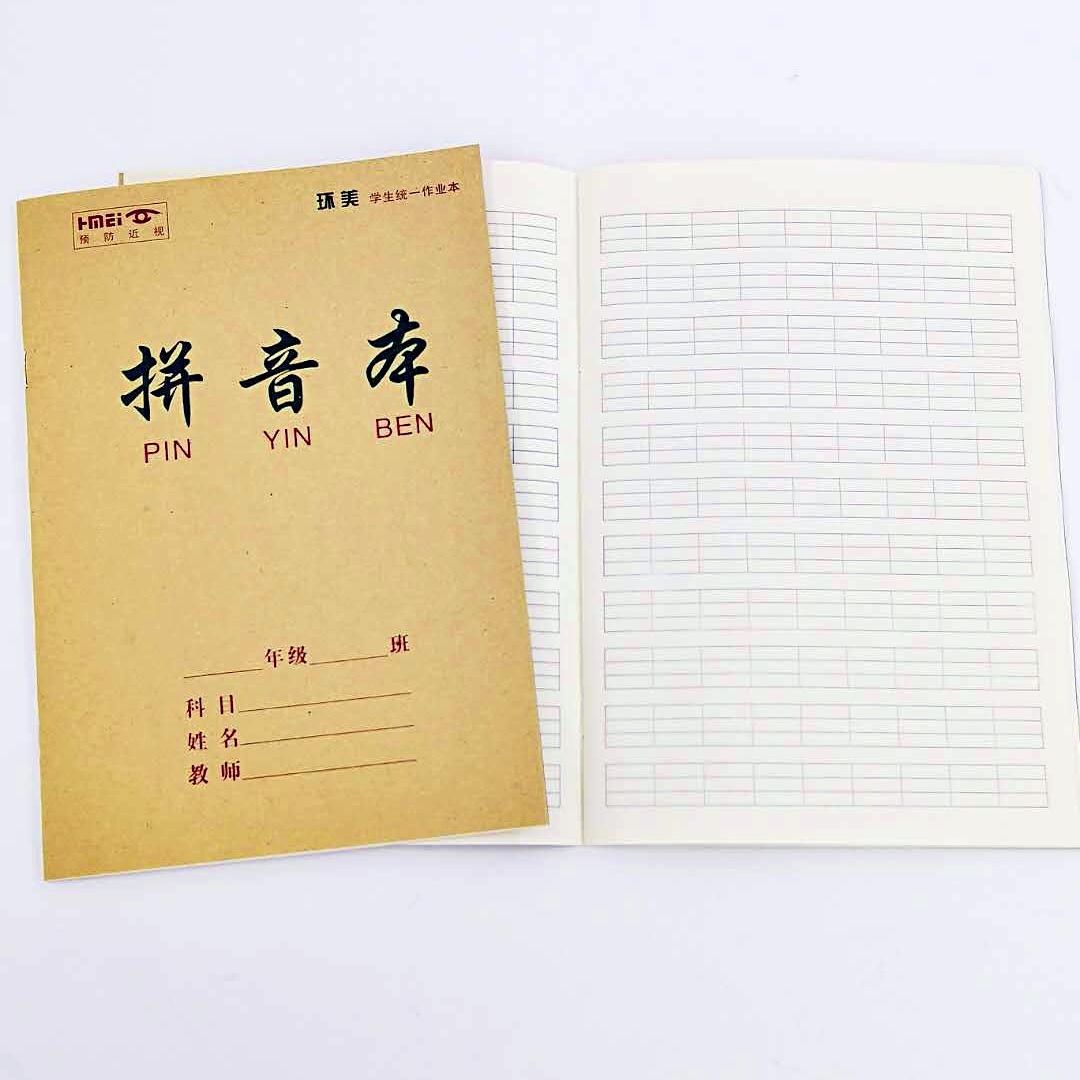 HMEi
预防近视
环美 学生统一作业本
拼音本
PIN YIN BEN
年级 班
科目
姓名
教师